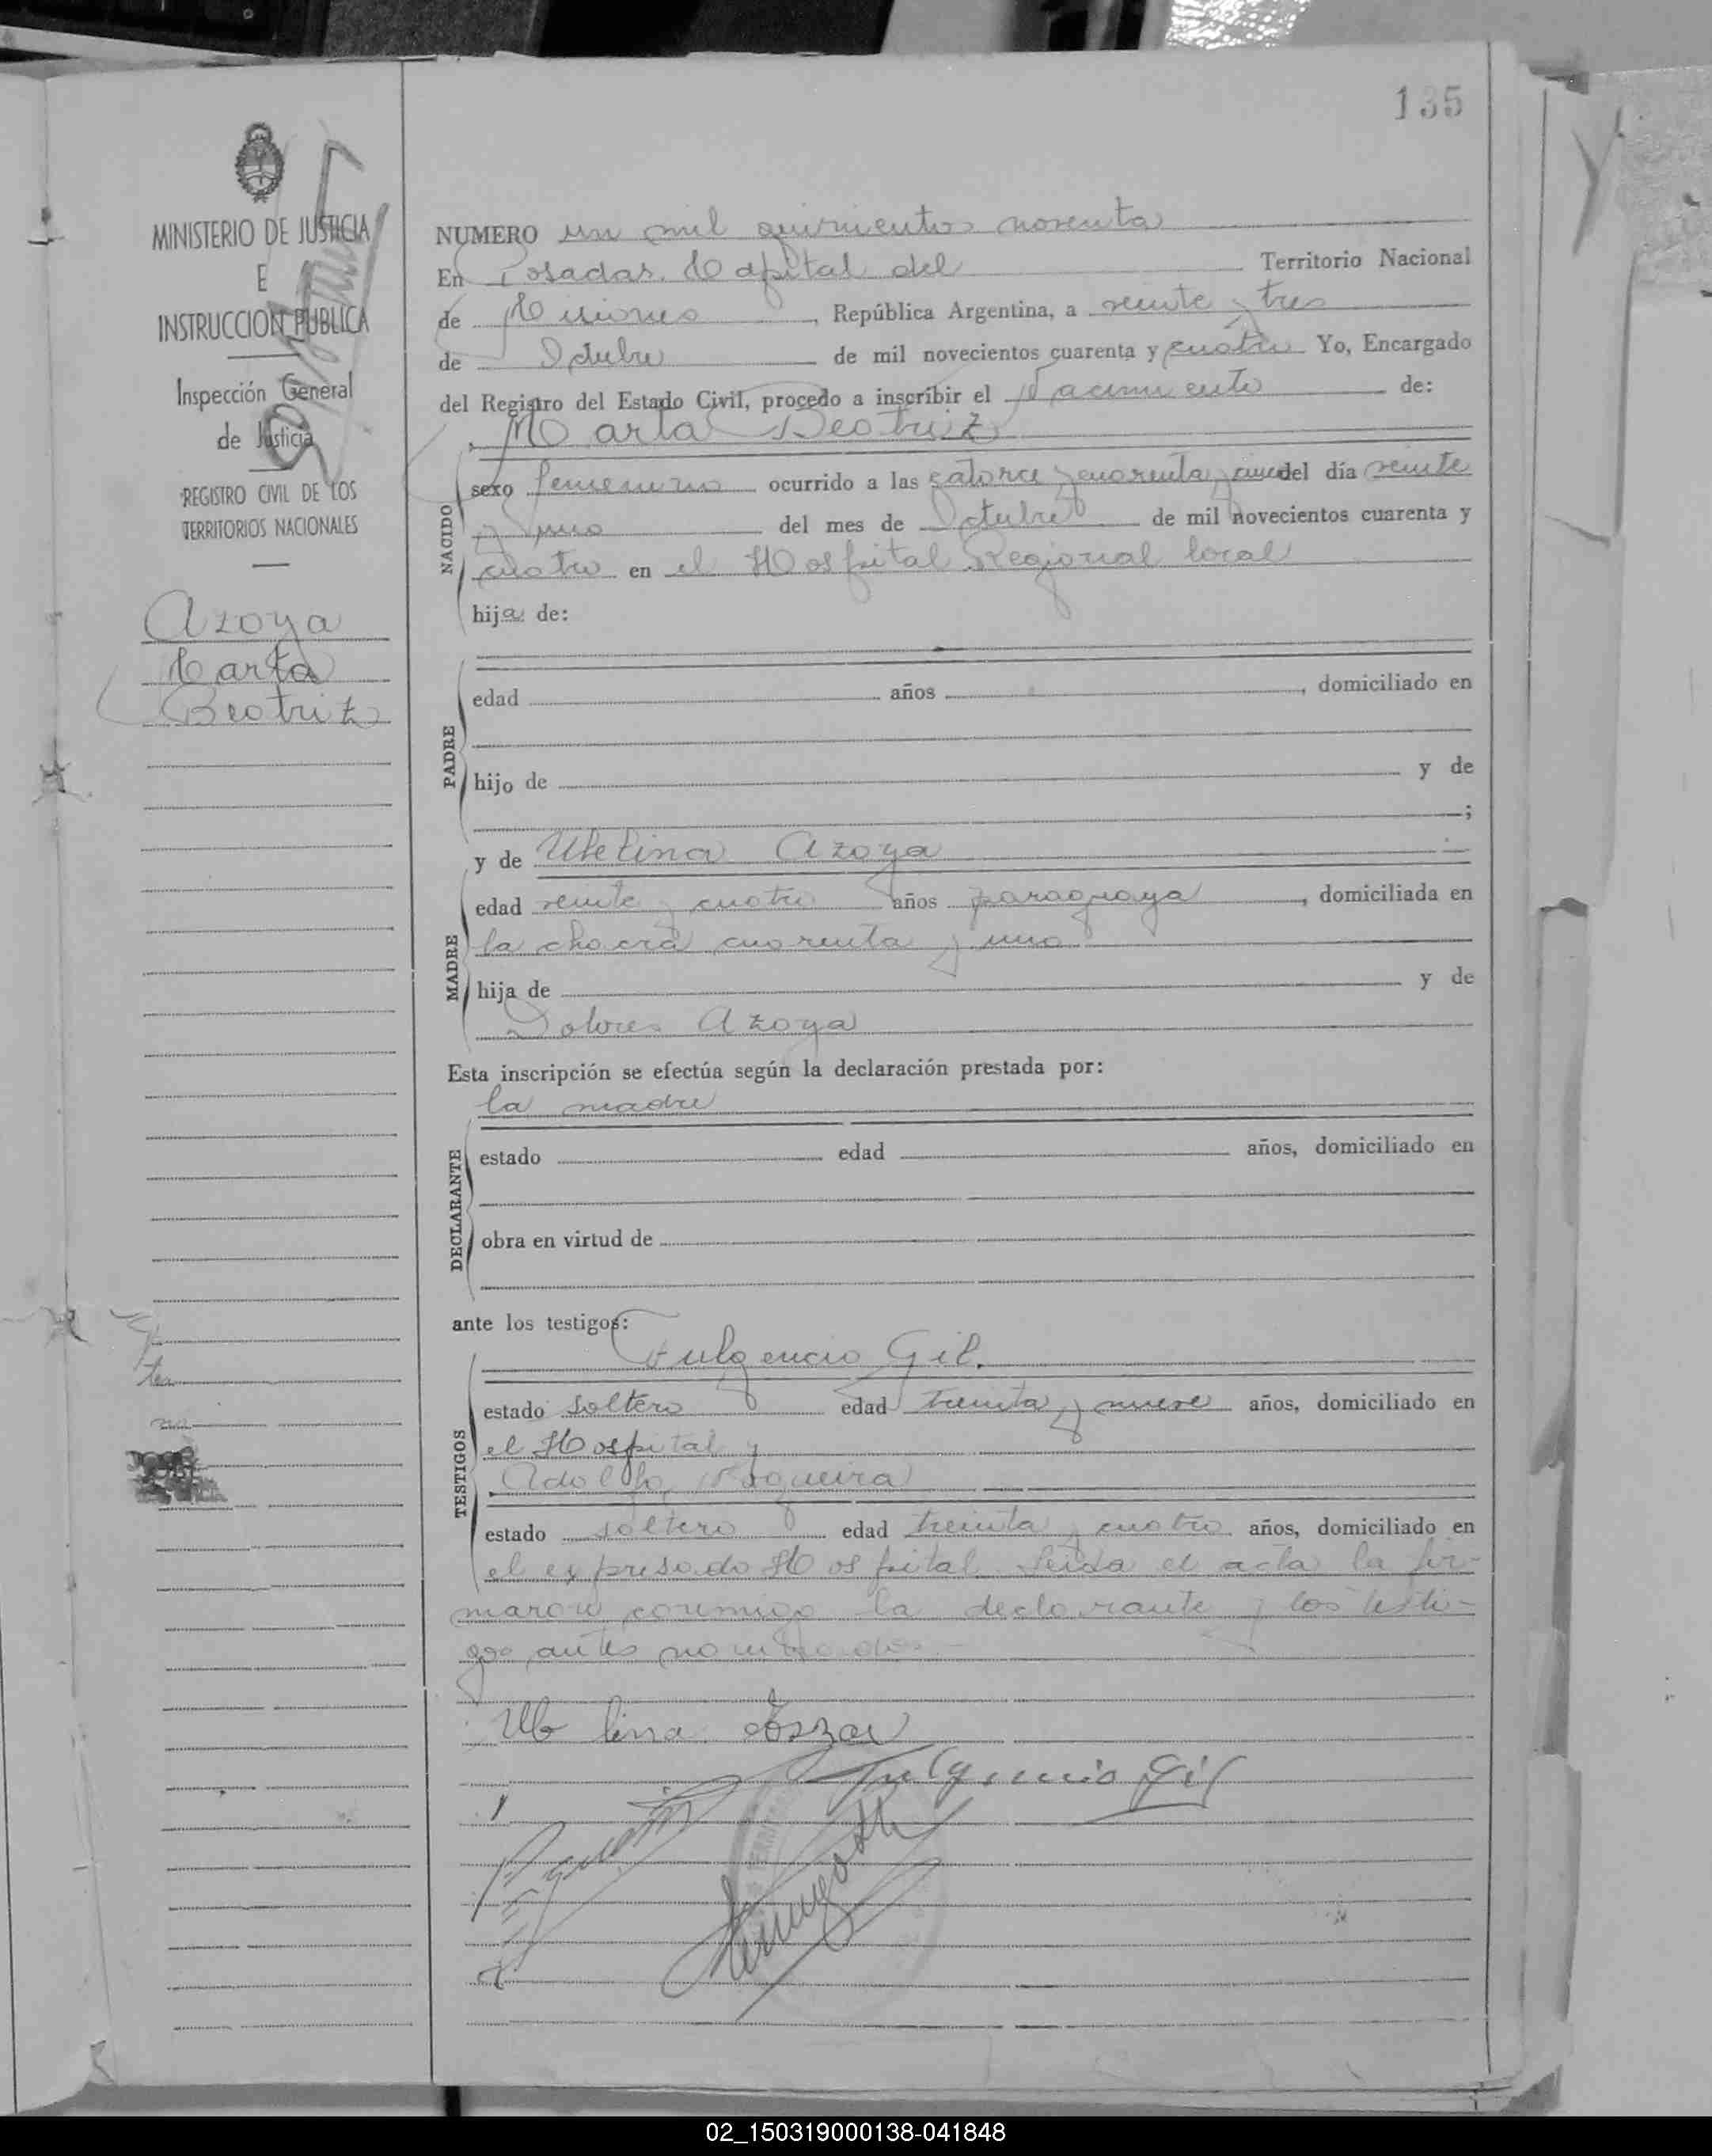 135
MINISTERIO DE JUSTICIA
E
INSTRUCCION PUBLICA
Inspección General
de Justicia
REGISTRO CIVIL DE LOS
TERRITORIOS NACIONALES
Azoya
Marta
Beatriz
NUMERO un mil quinientos noventa
En Posadas. Capital del Territorio Nacional
de Misiones, República Argentina, a veinte y tres
de Octubre de mil novecientos cuarenta y cuatro Yo, Encargado
del Registro del Estado Civil, procedo a inscribir el Nacimiento de:
Marta Beatriz
NACIDO
sexo femenino ocurrido a las catorce y cuarenta y cinco del día veinte
y uno del mes de Octubre de mil novecientos cuarenta y
cuatro en el Hospital Regional local
hija de:
PADRE
edad años , domiciliado en
hijo de y de
;
y de Ubelina Azoya
MADRE
edad veinte y cuatro años paraguaya, domiciliada en
la chacra cuarenta y uno
hija de y de
Dolores Azoya
Esta inscripción se efectúa según la declaración prestada por:
la madre
DECLARANTE
estado edad años, domiciliado en
obra en virtud de
ante los testigos:
Fulgencio Gil.
TESTIGOS
estado soltero edad treinta y nueve años, domiciliado en
el Hospital y
Adolfo Nogueira
estado soltero edad treinta y cuatro años, domiciliado en
el expresado Hospital. Leída el acta la fir-
maron conmigo la declarante y los testi-
gos antes nombrados.-
Ub lina
Fulgencio Gil
02_150319000138-041848